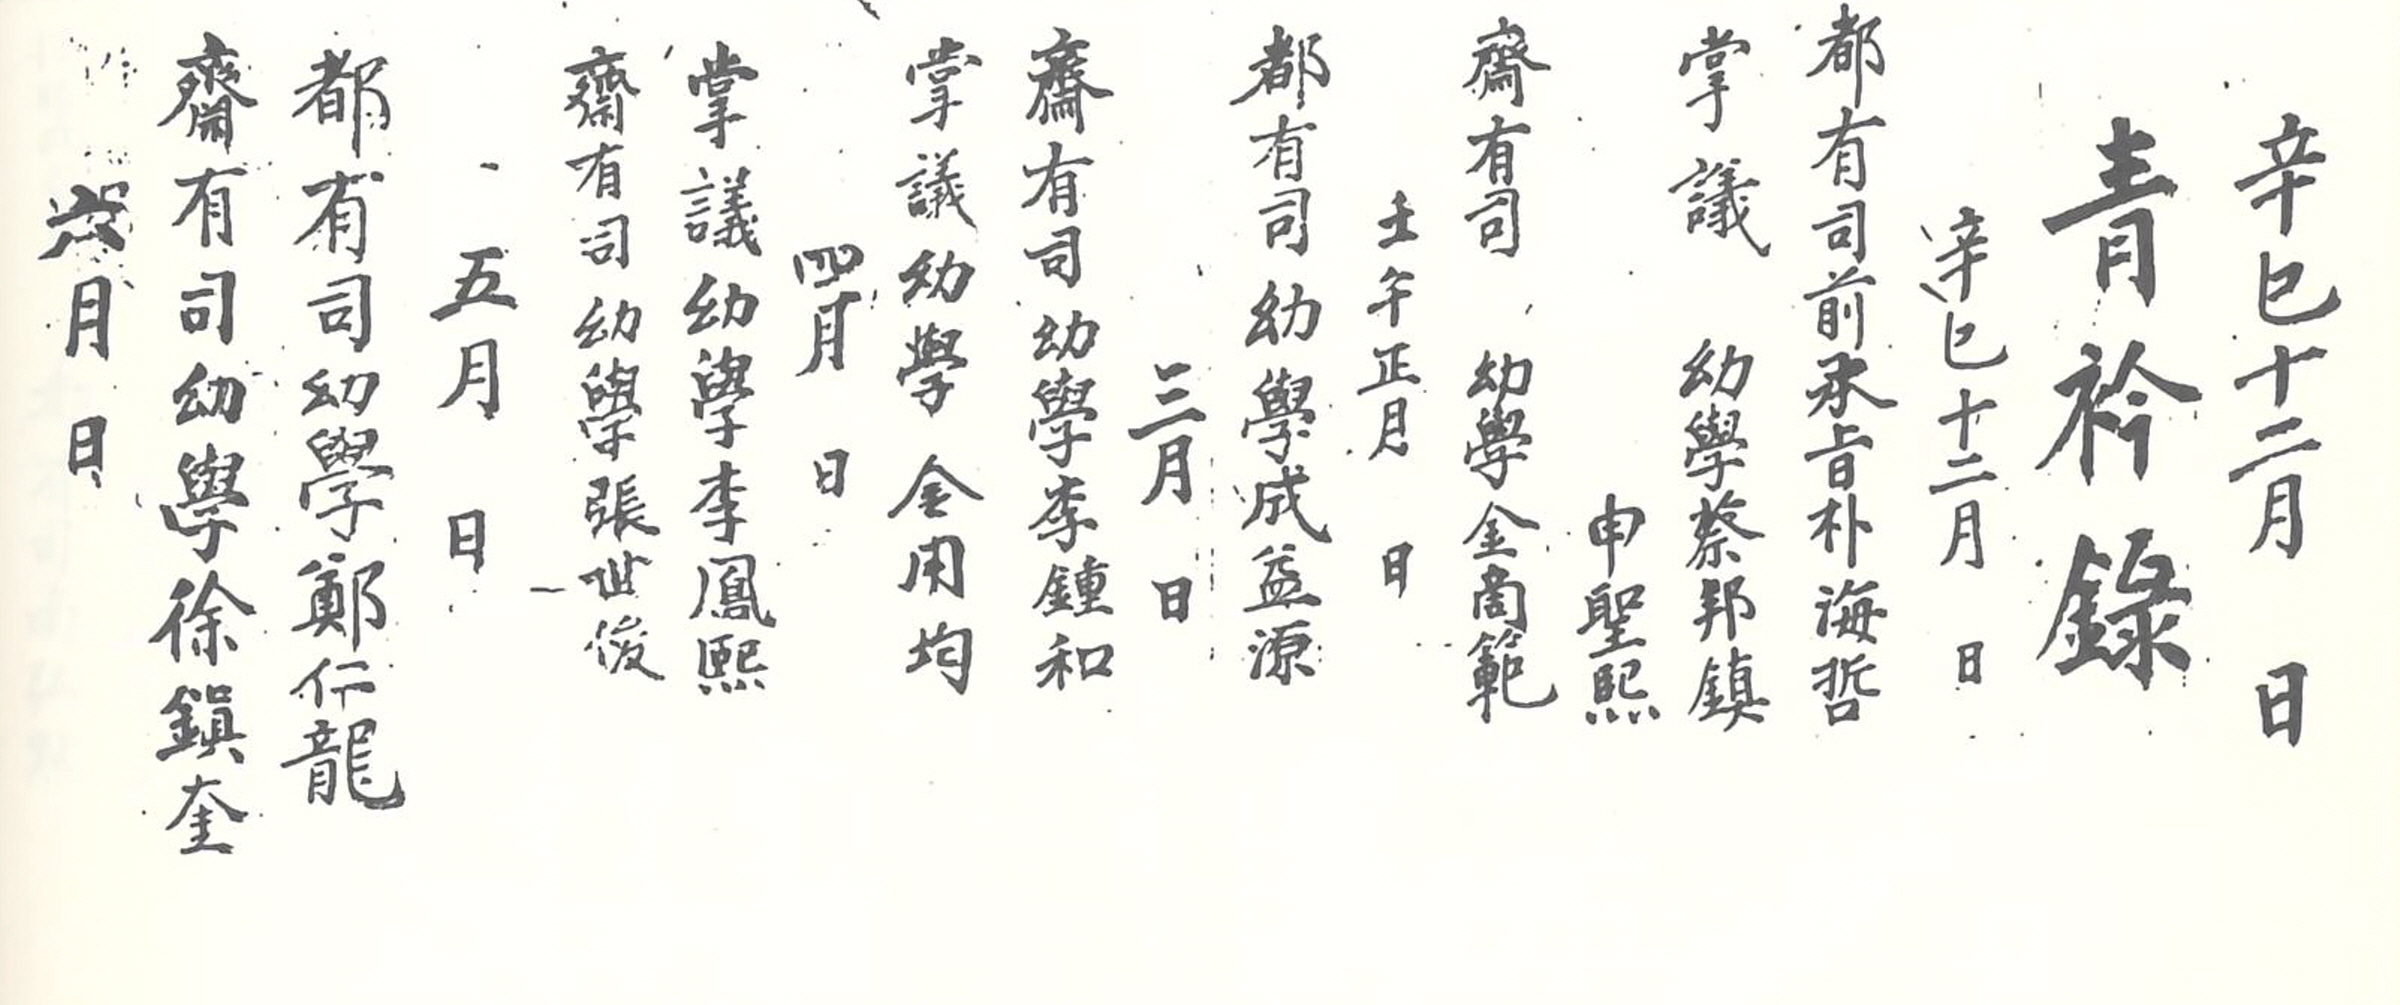 辛巳十二月 日
青衿錄
辛巳十二月 日
都有司前承旨朴海哲
掌議 幼學蔡邦鎮
申聖熙
齋有司 幼學金商範
壬午正月 日
都有司幼學成益源
三月 日
齋有司幼學李鍾和
掌議幼學金用均
四月 日
掌議幼學李鳳熙
齋有司幼學張世俊
五月 日
都有司幼學鄭仁龍
齋有司幼學徐鎭奎
六月 日